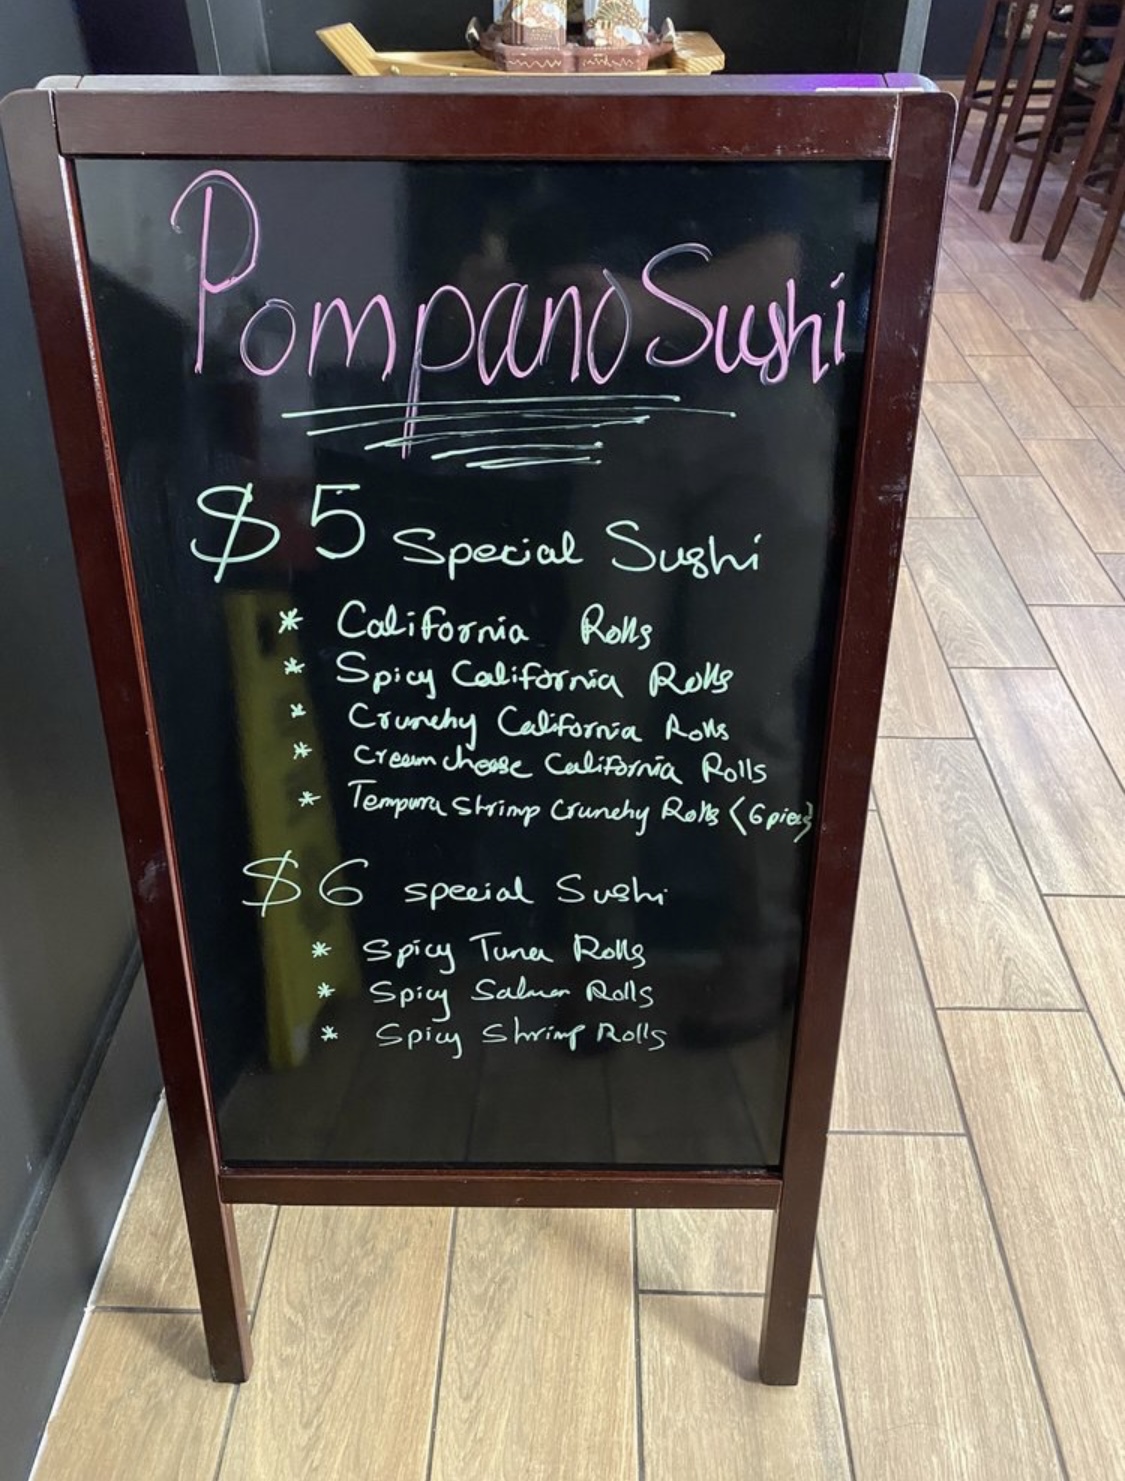 Pompano Sushi
$5 Special Sushi
* California Rolls
* Spicy California Rolls
* Crunchy California Rolls
* Creamcheese California Rolls
* Tempura Shrimp Crunchy Rolls (6 pies)
$6 special Sushi
* Spicy Tuna Rolls
* Spicy Salmon Rolls
* Spicy Shrimp Rolls